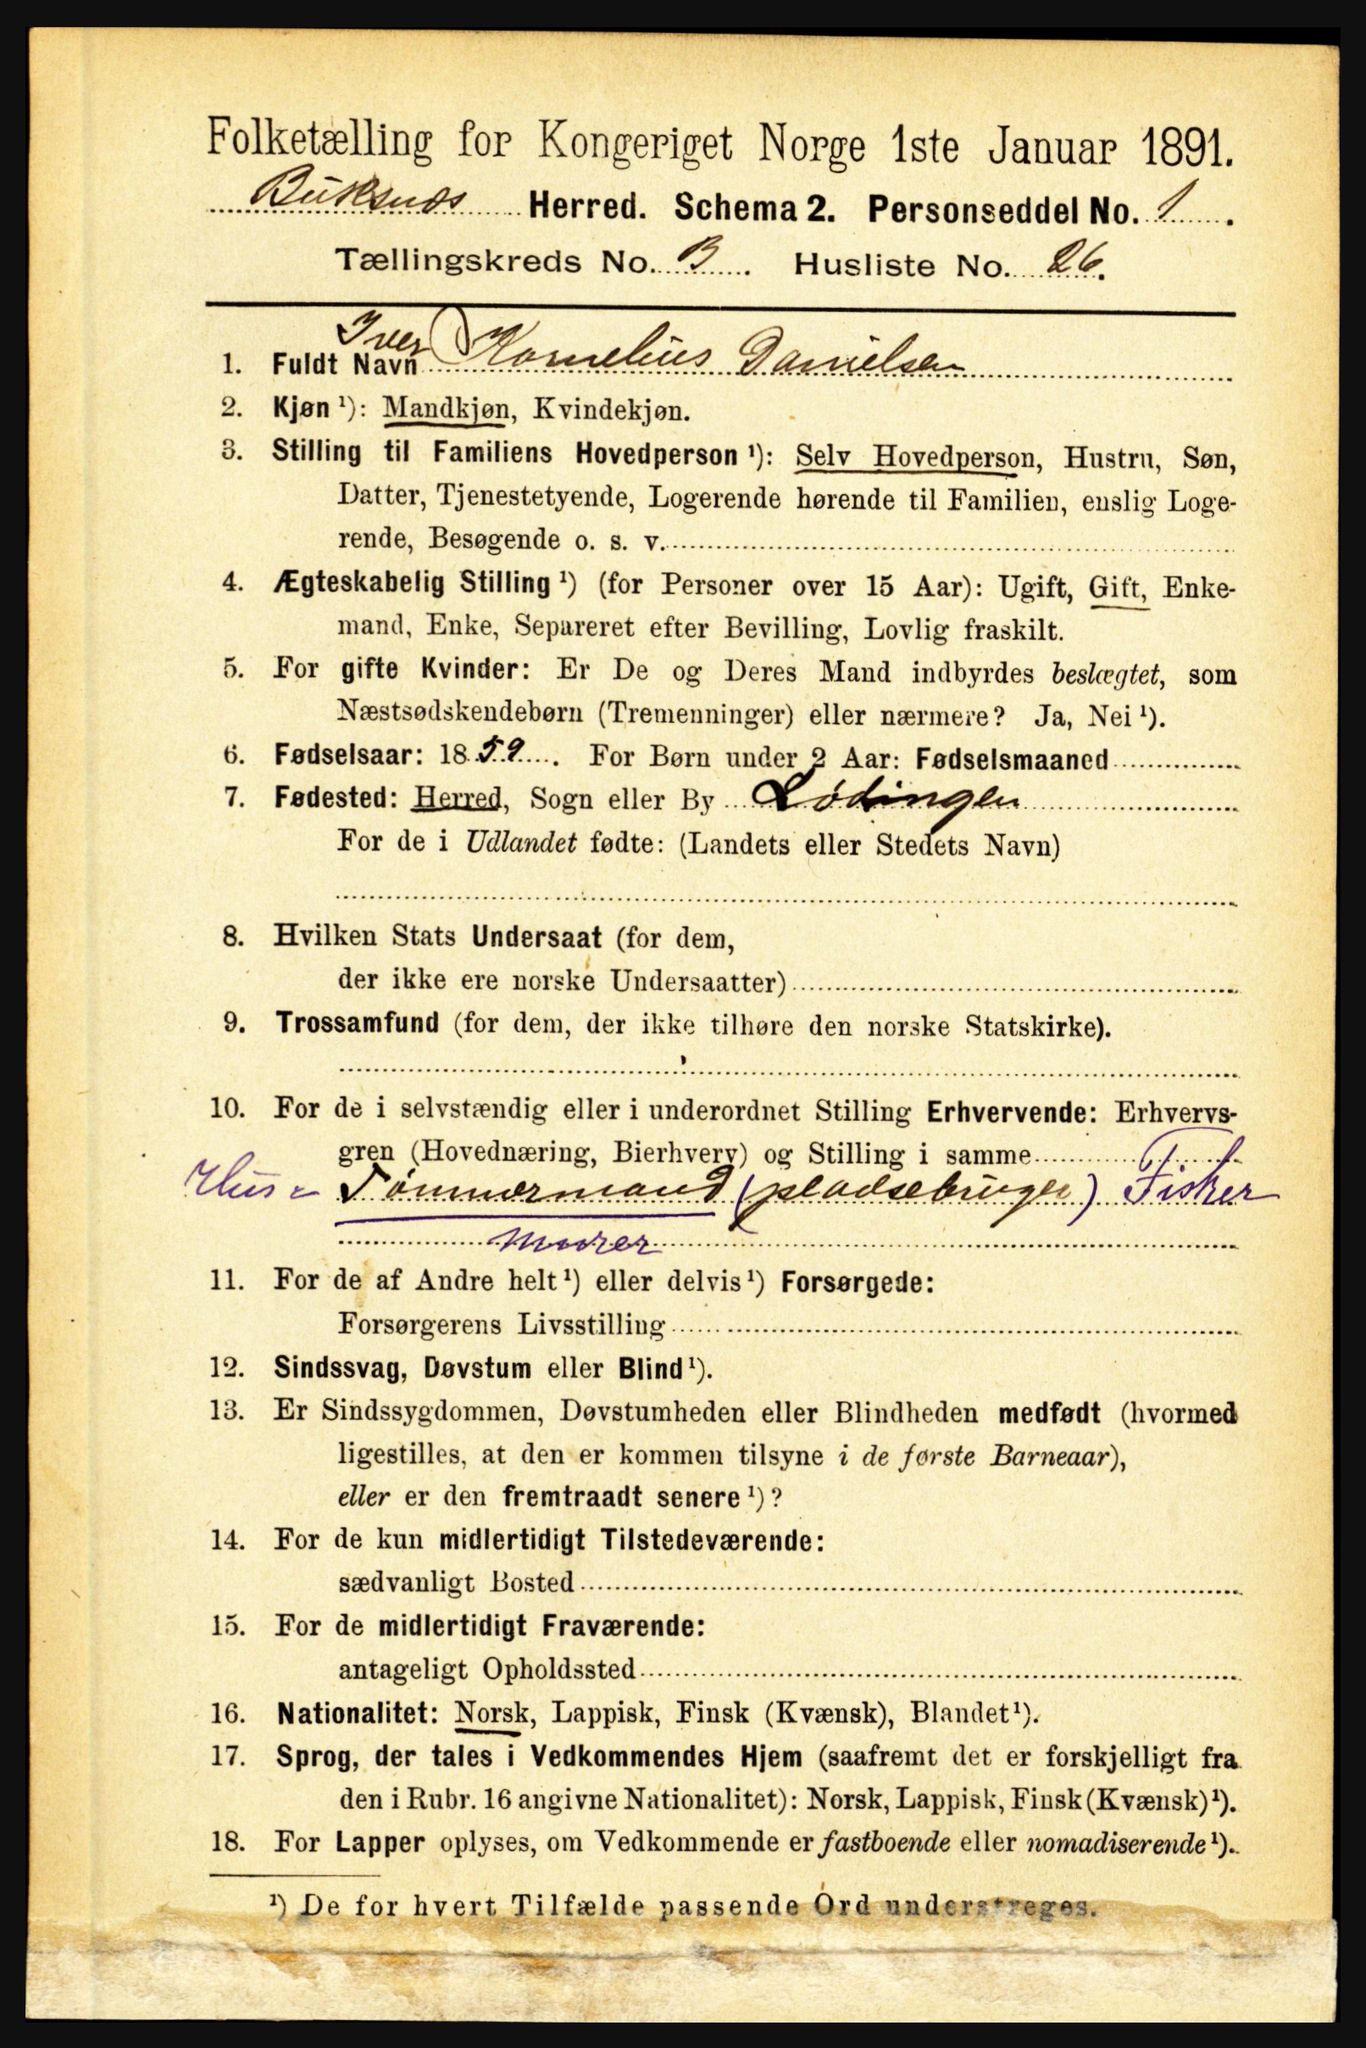 Folketælling for Kongeriget Norge 1ste Januar 1891.
Buksnæs Herred. Schema 2. Personseddel No. 1.
Tællingskreds No. B. Husliste No. 26.
Iver
1. Fuldt Navn Kornelius Danielsen
2. Kjøn ¹): Mandkjøn, Kvindekjøn.
3. Stilling til Familiens Hovedperson ¹): Selv Hovedperson, Hustru, Søn,
Datter, Tjenestetyende, Logerende hørende til Familien, enslig Loge-
rende, Besøgende o. s. v.
4. Ægteskabelig Stilling ¹) (for Personer over 15 Aar): Ugift, Gift, Enke-
mand, Enke, Separeret efter Bevilling, Lovlig fraskilt.
5. For gifte Kvinder: Er De og Deres Mand indbyrdes beslægtet, som
Næstsødskendebørn (Tremenninger) eller nærmere? Ja, Nei ¹).
6. Fødselsaar: 1859. For Børn under 2 Aar: Fødselsmaaned
7. Fødested: Herred, Sogn eller By Lødingen
For de i Udlandet fødte: (Landets eller Stedets Navn)
8. Hvilken Stats Undersaat (for dem,
der ikke ere norske Undersaatter)
9. Trossamfund (for dem, der ikke tilhøre den norske Statskirke).
10. For de i selvstændig eller i underordnet Stilling Erhvervende: Erhvervs-
gren (Hovednæring, Bierhverv) og Stilling i samme
Hus= Tømmermand (pladsebruger) Fisker
Murer
11. For de af Andre helt ¹) eller delvis ¹) Forsørgede:
Forsørgerens Livsstilling
12. Sindssvag, Døvstum eller Blind ¹).
13. Er Sindssygdommen, Døvstumheden eller Blindheden medfødt (hvormed
ligestilles, at den er kommen tilsyne i de første Barneaar),
eller er den fremtraadt senere ¹)?
14. For de kun midlertidigt Tilstedeværende:
sædvanligt Bosted
15. For de midlertidigt Fraværende:
antageligt Opholdssted
16. Nationalitet: Norsk, Lappisk, Finsk (Kvænsk), Blandet ¹).
17. Sprog, der tales i Vedkommendes Hjem (saafremt det er forskjelligt fra
den i Rubr. 16 angivne Nationalitet): Norsk, Lappisk, Finsk (Kvænsk) ¹).
18. For Lapper oplyses, om Vedkommende er fastboende eller nomadiserende ¹).
¹) De for hvert Tilfælde passende Ord understreges.